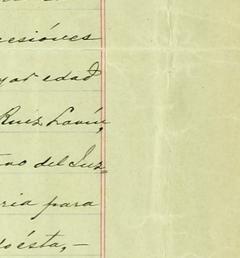 cesiónes
yor edad
Ruiz Lavín,
no del Juz-
ria para
do ésta,-